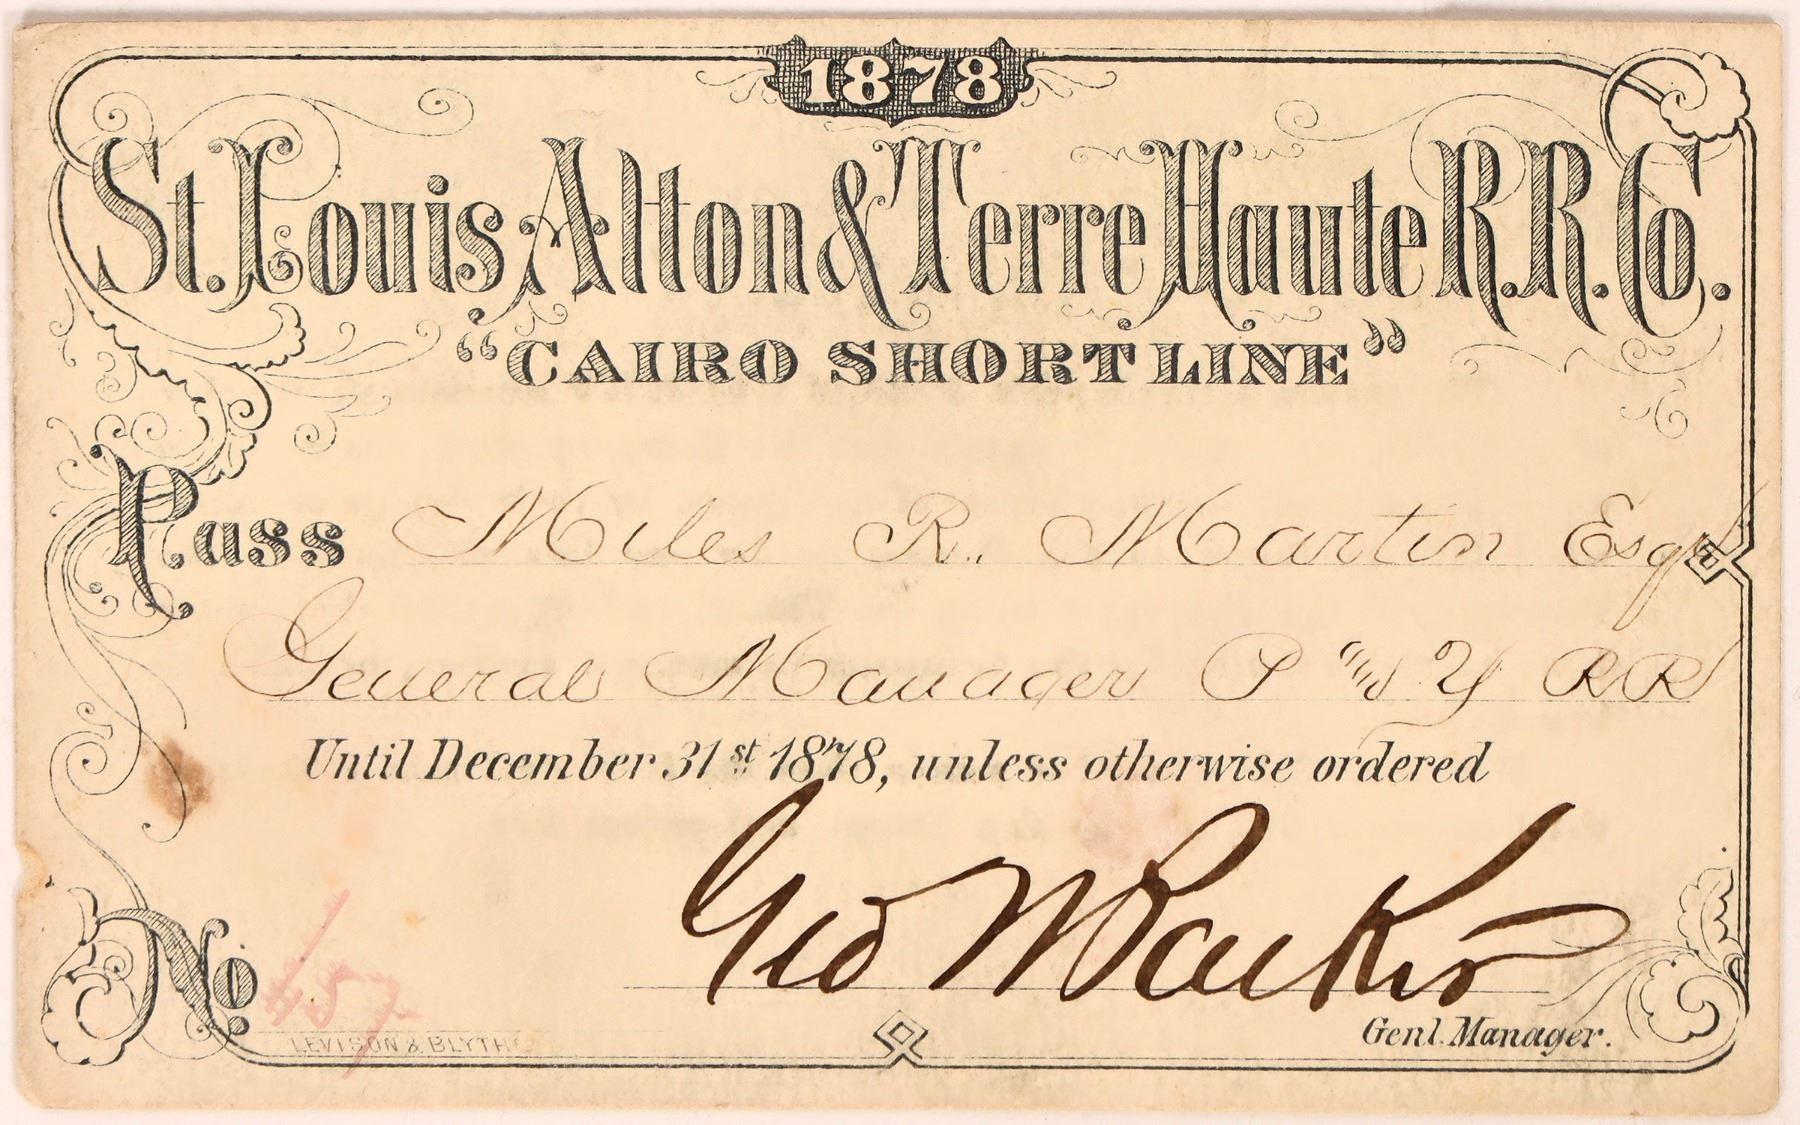 1878
St. Louis Alton & Terre Haute R.R. Co.
“CAIRO SHORT LINE”
Pass Miles R. Martin Esq
General Manager P and Y RR
Until December 31st 1878, unless otherwise ordered
Geo W Parker
No. 457
LEVISON & BLYTHE
Genl. Manager.